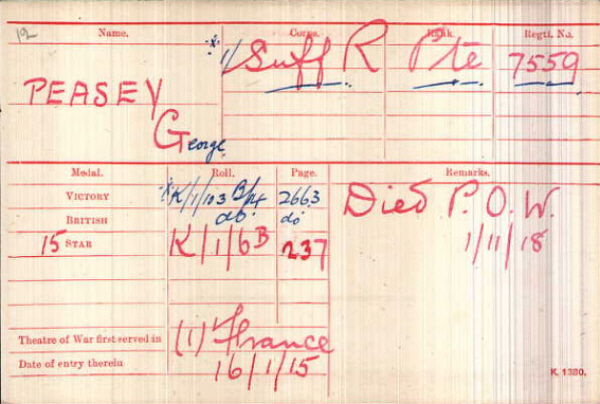 12 Name. Corps. Rank. Regtl. No.
* 1/Suff R Pte 7559
PEASEY
George
Medal. Roll. Page. Remarks.
VICTORY *K/1/103 B/p4 2663 Died P.O.W.
BRITISH do. do 1/11/18
15 STAR K/1/6B 237
Theatre of War first served in (1) France
Date of entry therein 16/1/15
K. 1380.